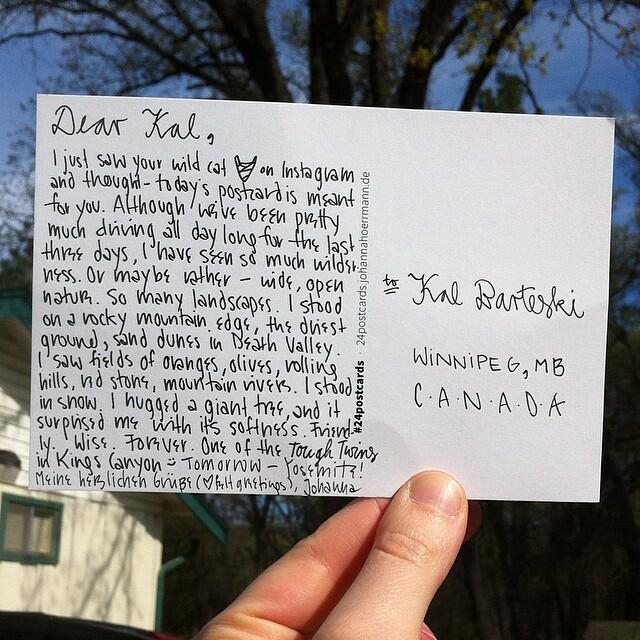 Dear Kal,
I just saw your wild cat on Instagram
and thought - today's postcard is meant
for you. Although we've been pretty
much driving all day long for the last
three days, I have seen so much wilder-
ness. Or maybe rather - wide, open
nature. So many landscapes. I stood
on a rocky mountain edge, the driest
ground, sand dunes in Death Valley.
I saw fields of oranges, olives, rolling
hills, red stone, mountain rivers. I stood
in snow. I hugged a giant tree, and it
surprised me with it's softness. Friend-
ly. Wise. Forever. One of the Tough Twins
in Kings Canyon :) Tomorrow - Yosemite!
Meine herzlichen Grüße (♡felt greetings), Johanna
#24postcards 24postcards.johannahoerrmann.de
to Kal Barteski
WINNIPEG, MB
C·A·N·A·D·A